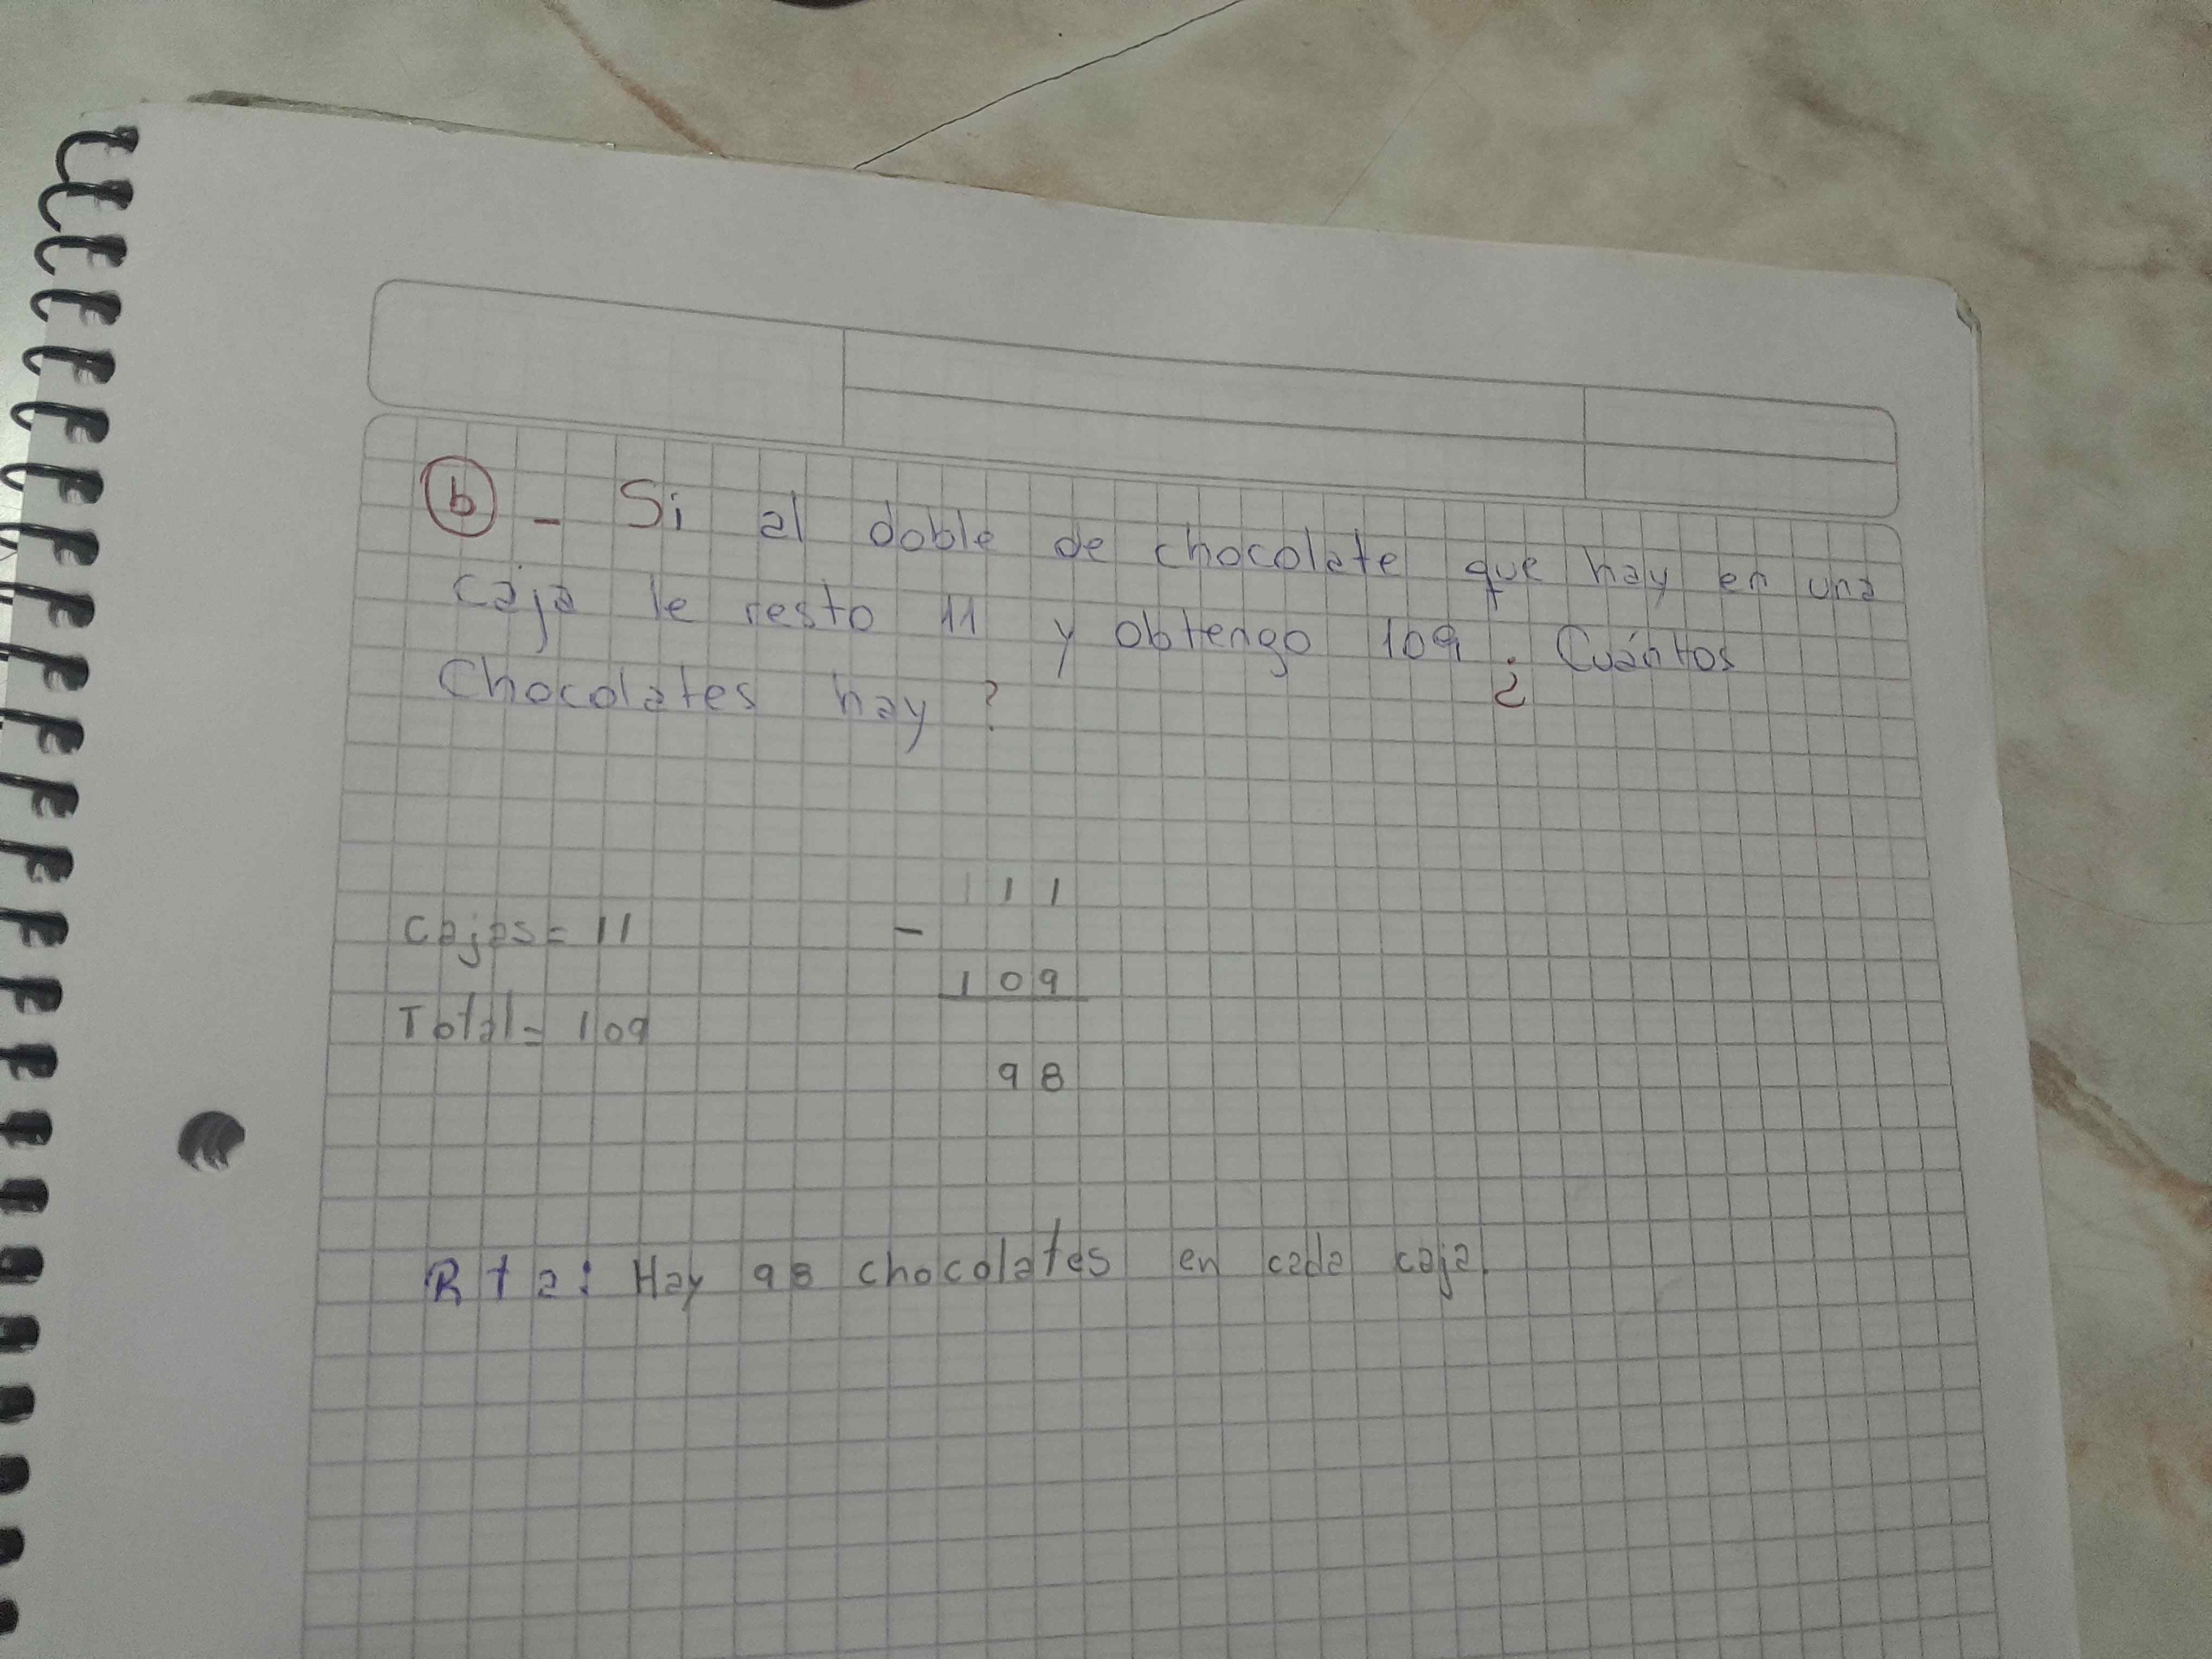 b - Si al doble de chocolate que hay en una
caja le resto 11 y obtengo 109. ¿ Cuántos
Chocolates hay ?
111
Cajas = 11 -
109
Total = 109
98
Rta: Hay 98 chocolates en cada caja.